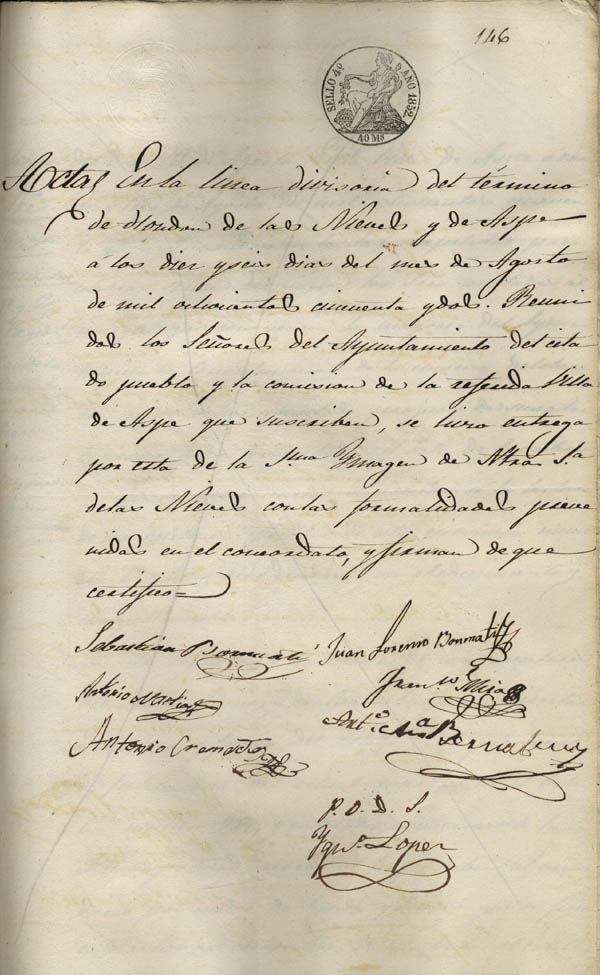 146
SELLO 4º AÑO 1852
40 Mˢ
Acta En la linea divisoria del término
de Hondon de las Nieves y de Aspe
á los diez y seis dias del mes de Agosto
de mil ochocientos cincuenta y dos. Reuni
dos los Señores del Ayuntamiento del cita
do pueblo y la comision de la referida Villa
de Aspe que suscriben, se hizo entrega
por esta de la S.ma Ymagen de Ntra S.a
de las Nieves con las formalidades preve
nidas en el concordato, y firman de que
certifico=
Sebastián Bonmatí Juan Lorenzo Bonmatí
Antonio Martinez Fran.co Mira
Antonio Cremades Ant.o M.a Bernabeu
P. O. D. S.
Ygn.o Lopez